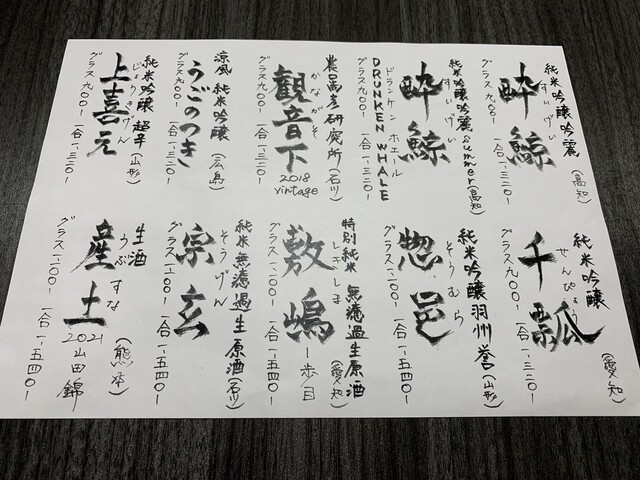 純米吟醸吟麗
すいげい
酔鯨
(高知)
グラス九〇〇- 一合一、三二〇-
純米吟醸吟麗summer(高知)
すいげい
酔鯨
ドランケン ホエール
DRUNKEN WHALE
グラス九〇〇- 一合一、三二〇-
農口尚彦研究所(石川)
かながそ
観音下
2018
vintage
グラス九〇〇- 一合一、三二〇-
涼風 純米吟醸
うごのつき
(広島)
グラス九〇〇- 一合一、三二〇-
純米吟醸 超辛(山形)
じょうきげん
上喜元
グラス九〇〇- 一合一、三二〇-
純米吟醸
せんぴょう
千瓢
(愛知)
グラス九〇〇- 一合一、三二〇-
純米吟醸羽州誉(山形)
そうむら
惣邑
グラス一、一〇〇- 一合一、五四〇-
特別純米 無濾過生原酒
しきしま
敷嶋
一歩目
(愛知)
グラス一、一〇〇- 一合一、五四〇-
純米無濾過生原酒(石川)
そうげん
宗玄
グラス一、一〇〇- 一合一、五四〇-
生酒
うぶすな
産土
(熊本)
2021
山田錦
グラス一、一〇〇- 一合一、五四〇-